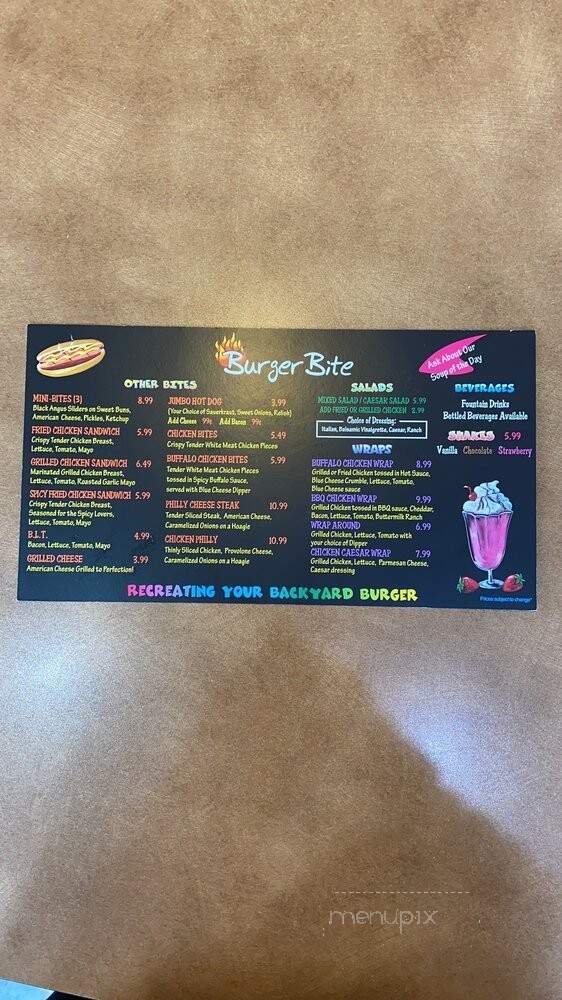 Burger Bite
Ask About Our
Soup of the Day
OTHER BITES
MINI-BITES (3) 8.99
Black Angus Sliders on Sweet Buns,
American Cheese, Pickles, Ketchup
FRIED CHICKEN SANDWICH 5.99
Crispy Tender Chicken Breast,
Lettuce, Tomato, Mayo
GRILLED CHICKEN SANDWICH 6.49
Marinated Grilled Chicken Breast,
Lettuce, Tomato, Roasted Garlic Mayo
SPICY FRIED CHICKEN SANDWICH 5.99
Crispy Tender Chicken Breast,
Seasoned for the Spicy Lovers,
Lettuce, Tomato, Mayo
B.L.T. 4.99
Bacon, Lettuce, Tomato, Mayo
GRILLED CHEESE 3.99
American Cheese Grilled to Perfection!
JUMBO HOT DOG 3.99
(Your Choice of Sauerkraut, Sweet Onions, Relish)
Add Cheese 99¢ Add Bacon 99¢
CHICKEN BITES 5.49
Crispy Tender White Meat Chicken Pieces
BUFFALO CHICKEN BITES 5.99
Tender White Meat Chicken Pieces
tossed in Spicy Buffalo Sauce,
served with Blue Cheese Dipper
PHILLY CHEESE STEAK 10.99
Tender Sliced Steak, American Cheese,
Caramelized Onions on a Hoagie
CHICKEN PHILLY 10.99
Thinly Sliced Chicken, Provolone Cheese,
Caramelized Onions on a Hoagie
SALADS
MIXED SALAD / CAESAR SALAD 5.99
ADD FRIED OR GRILLED CHICKEN 2.99
Choice of Dressing:
Italian, Balsamic Vinaigretta, Caesar, Ranch
WRAPS
BUFFALO CHICKEN WRAP 8.99
Grilled or Fried Chicken tossed in Hot Sauce,
Blue Cheese Crumble, Lettuce, Tomato,
Blue Cheese sauce
BBQ CHICKEN WRAP 9.99
Grilled Chicken tossed in BBQ sauce, Cheddar,
Bacon, Lettuce, Tomato, Buttermilk Ranch
WRAP AROUND 6.99
Grilled Chicken, Lettuce, Tomato with
your choice of Dipper
CHICKEN CAESAR WRAP 7.99
Grilled Chicken, Lettuce, Parmesan Cheese,
Caesar dressing
BEVERAGES
Fountain Drinks
Bottled Beverages Available
SHAKES 5.99
Vanilla Chocolate Strawberry
Prices subject to change*
RECREATING YOUR BACKYARD BURGER
menupix